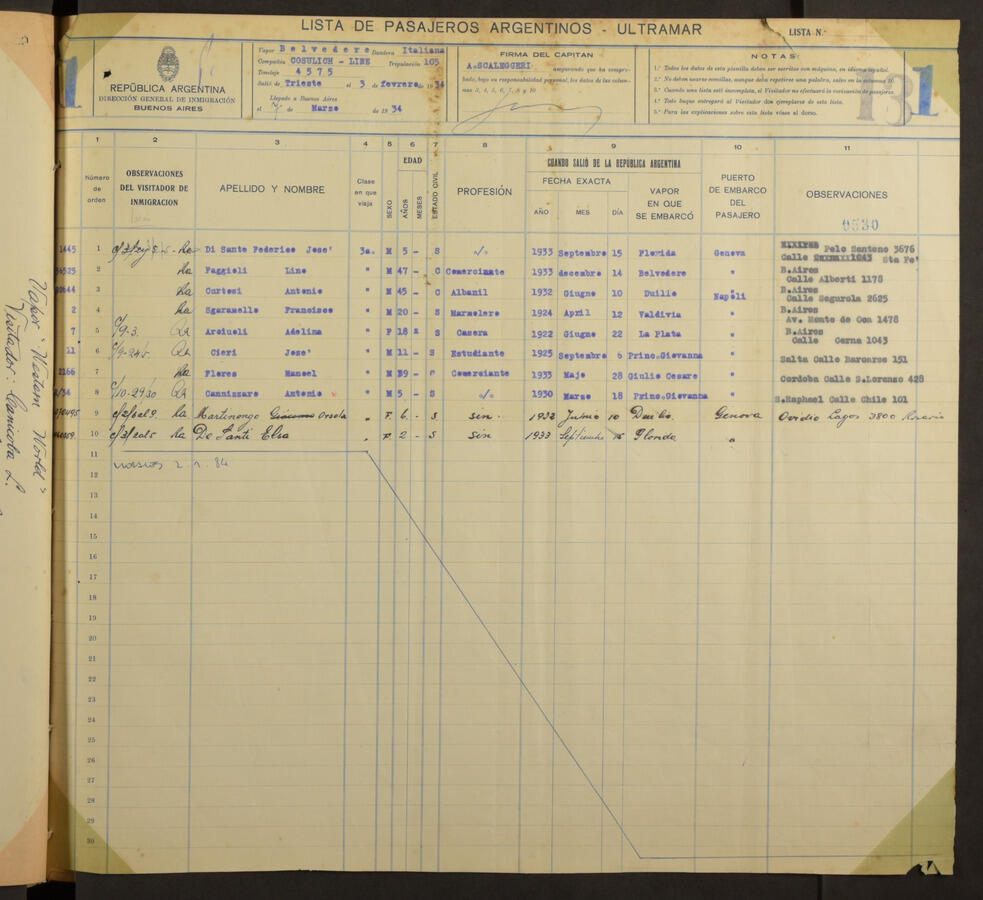 LISTA DE PASAJEROS ARGENTINOS - ULTRAMAR
LISTA N.º
REPÚBLICA ARGENTINA
DIRECCIÓN GENERAL DE INMIGRACIÓN
BUENOS AIRES
Vapor Belvedere Bandera Italiana
Compañía COSULICH - LINE Tripulación 105
Tonelaje 4575
Salió de Trieste el 3 de fevrero de 1934
Llegado a Buenos Aires
el 7 de Marzo de 1934
FIRMA DEL CAPITAN
A.SCALEGGERI asegurando que ha comprobado, bajo su responsabilidad personal, los datos de las columnas 3, 4, 5, 6, 7, 8, 9 y 10
NOTAS
1.ª Todos los datos de esta planilla deben ser escritos con máquina, en idioma español.
2.ª No deben usarse comillas, aunque deba repetirse una palabra, salvo en la columna 10.
3.ª Cuando una lista esté incompleta, el Visitador no efectuará la revisación de pasajeros.
4.ª Todo buque entregará al Visitador dos ejemplares de esta lista.
5.ª Para las explicaciones sobre esta lista véase al dorso.
131
1 2 3 4 5 6 7 8 9 10 11
Número de orden
OBSERVACIONES DEL VISITADOR DE INMIGRACION
APELLIDO Y NOMBRE
Clase en que viaja
SEXO
EDAD
AÑOS
MESES
ESTADO CIVIL
PROFESIÓN
CUANDO SALIÓ DE LA REPÚBLICA ARGENTINA
FECHA EXACTA
AÑO MES DÍA
VAPOR EN QUE SE EMBARCÓ
PUERTO DE EMBARCO DEL PASAJERO
OBSERVACIONES
0530
1445 1 Di Sante Federico Jose' 3a. M 5 - S 1933 Septembre 15 Florida Genova Pelo Santeno 3676
Calle 1043 Sta Fe'
36525 2 Faggioli Lino " M 47 - C Comercinate 1933 decembre 14 Belvedere " B.Aires
Calle Alberti 1178
3 Cortesi Antonio " M 45 - C Albanil 1932 Giugno 10 Duilio Napoli B.Aires
Calle Segurola 2625
2 4 Sgaramello Francisco " M 20 - S 1924 April 12 Valdivia " B.Aires
Av. Monte de Oca 1478
7 5 Adelina " F 18 " S Casera 1922 Giugno 22 La Plata " B.Aires
Calle Cerna 1043
11 6 Cieri Jose' " M 11 - S Estudiante 1925 Septembre 6 Princ.Giovanna " Salta Calle Barcarse 151
2166 7 Flores Manoel " M 39 - C Comerciante 1933 Majo 28 Giulio Cesare " Cordoba Calle S.Lorenzo 428
8 Cannizzaro Antonio " M 5 - S 1930 Marzo 18 Princ.Giovanna " S.Raphael Calle Chile 101
9 Martinongo Orsola " F 6 - S sin. 1932 Junio 10 Duilio Genova Ovidio Lagos 3800 Rosario
10 De Santi Elsa " F 2 - S sin 1933 Septiembre 15 Florida "
11
12
13
14
15
16
17
18
19
20
21
22
23
24
25
26
27
28
29
30
Vapor "Western World"
Visitador: Canicoba L.